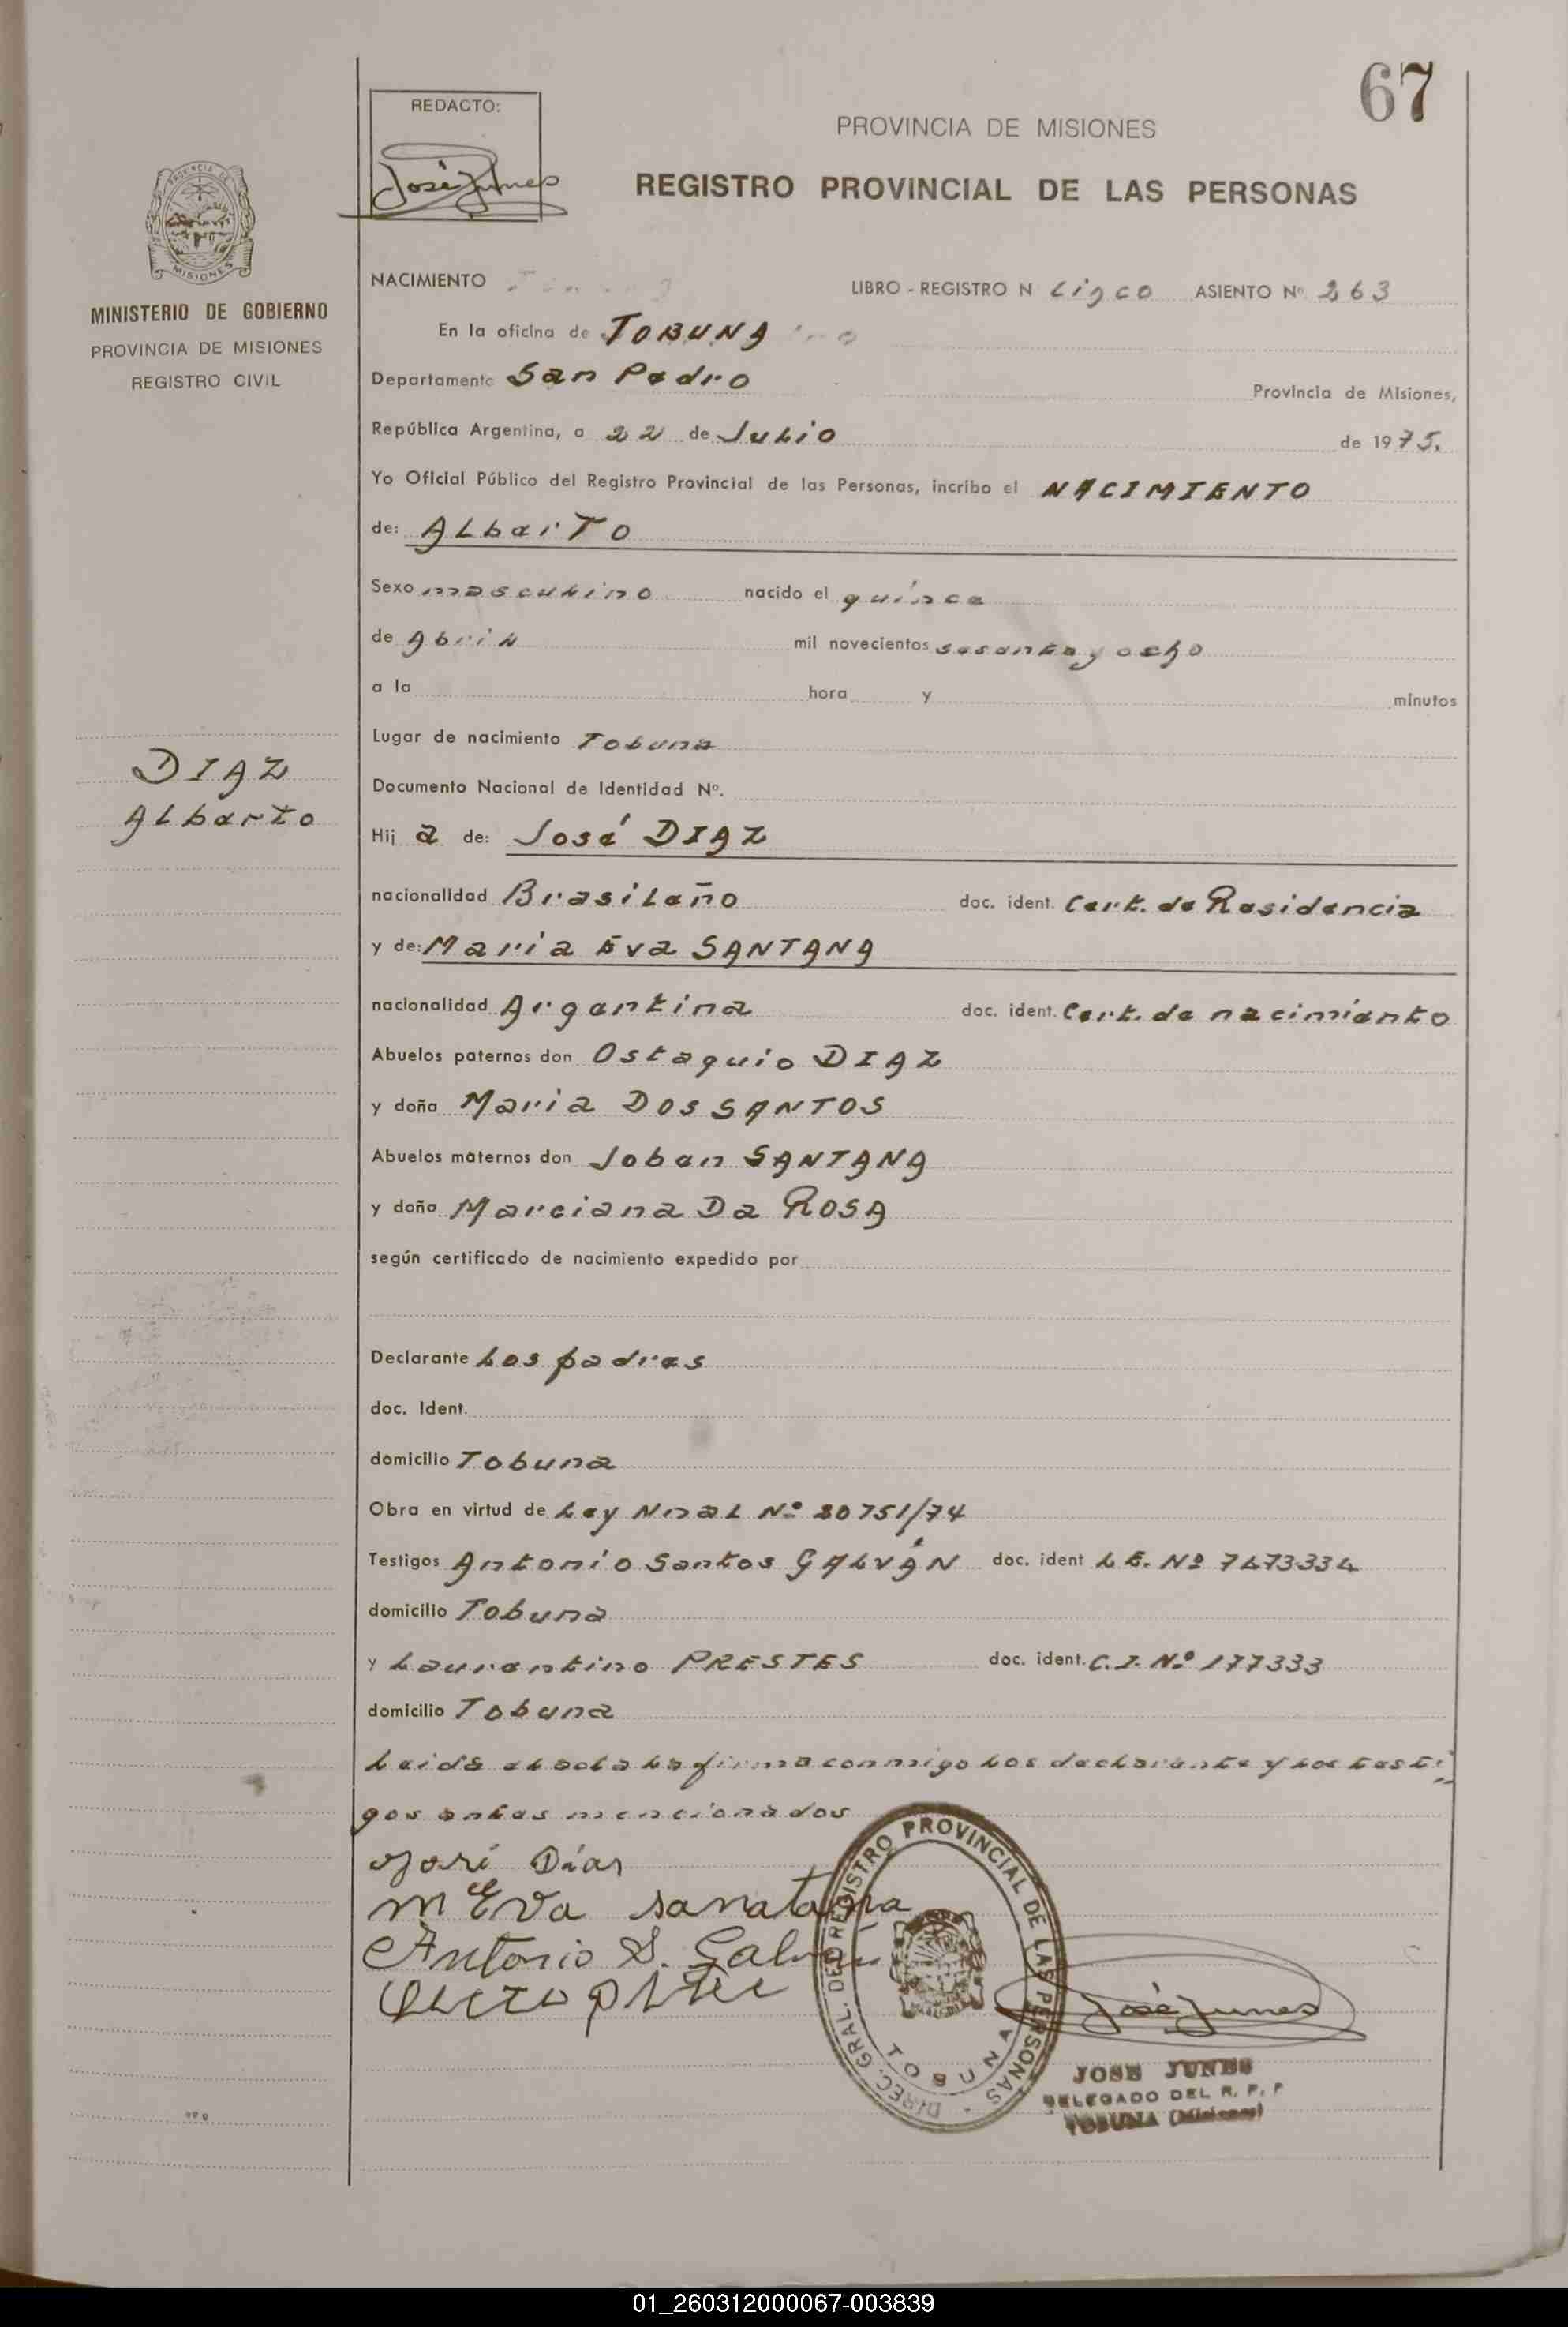 67
REDACTO:
José Junes
PROVINCIA DE MISIONES
REGISTRO PROVINCIAL DE LAS PERSONAS
PROVINCIA DE
MISIONES
MINISTERIO DE GOBIERNO
PROVINCIA DE MISIONES
REGISTRO CIVIL
NACIMIENTO LIBRO - REGISTRO N Cinco ASIENTO Nº 263
En la oficina de TOBUNA
Departamento San Pedro Provincia de Misiones,
República Argentina, a 22 de Julio de 1975.
Yo Oficial Público del Registro Provincial de las Personas, incribo el NACIMIENTO
de: ALberTo
Sexo masculino nacido el quince
de Abril mil novecientos sesenta y ocho
a la hora y minutos
Lugar de nacimiento Tobuna
DIAZ
ALberto
Documento Nacional de Identidad Nº.
Hij a de: José DIAZ
nacionalidad Brasileño doc. ident. Cert. de Residencia
y de: Maria Eva SANTANA
nacionalidad Argentina doc. ident. Cert. de nacimiento
Abuelos paternos don Ostaquio DIAZ
y doña Maria DOS SANTOS
Abuelos maternos don Joben SANTANA
y doña Marciana Da ROSA
según certificado de nacimiento expedido por
Declarante Los padres
doc. Ident.
domicilio Tobuna
Obra en virtud de Ley Nnal Nº 20751/74
Testigos Antonio Santos GALVÁN doc. ident L.E. Nº 7473334
domicilio Tobuna
y Laurentino PRESTES doc. ident. C.I. Nº 177333
domicilio Tobuna
Leida el acta la firma conmigo los declarante y los testi
gos antes mencionados
José Días
M Eva sanatana
Antonio S. Galván
DIREC. GRAL. DEL REGISTRO PROVINCIAL DE LAS PERSONAS
TOBUNA
José Junes
JOSE JUNES
DELEGADO DEL R. P. P
TOBUNA (Misiones)
01_260312000067-003839